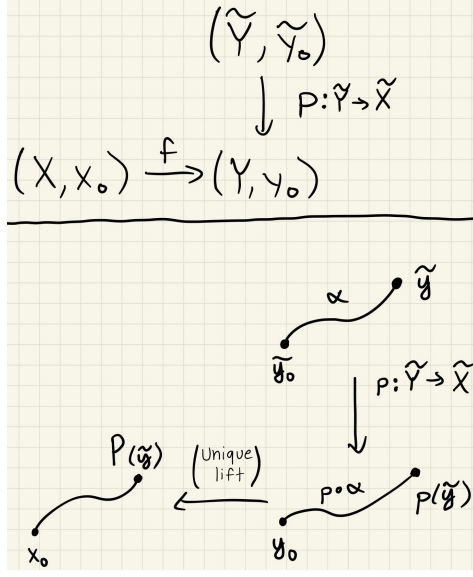 (Ỹ, ỹ₀)
p: Ỹ → X̃
(X, x₀) f→ (Y, y₀)
α
ỹ
ỹ₀
p: Ỹ → X̃
P(ỹ)
(Unique lift)
p∘α
p(ỹ)
x₀
y₀